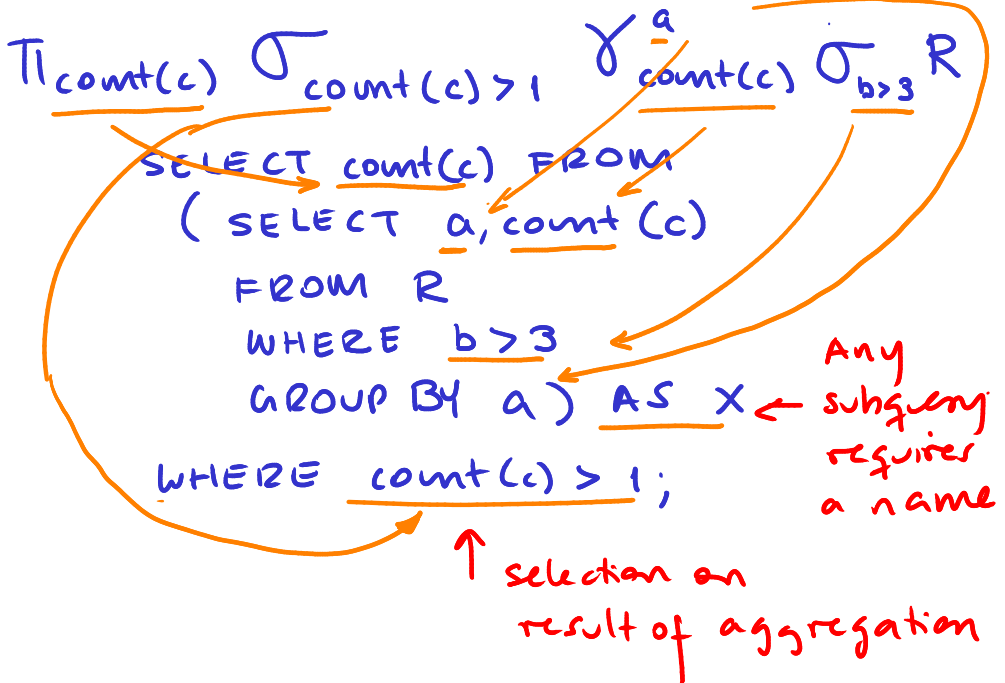 π count(c) σ count(c)>1 γ a count(c) σ b>3 R
SELECT count(c) FROM
( SELECT a, count (c)
FROM R
WHERE b > 3
GROUP BY a ) AS X
WHERE count(c) > 1;
← Any
subquery
requires
a name
↑ selection on
result of aggregation